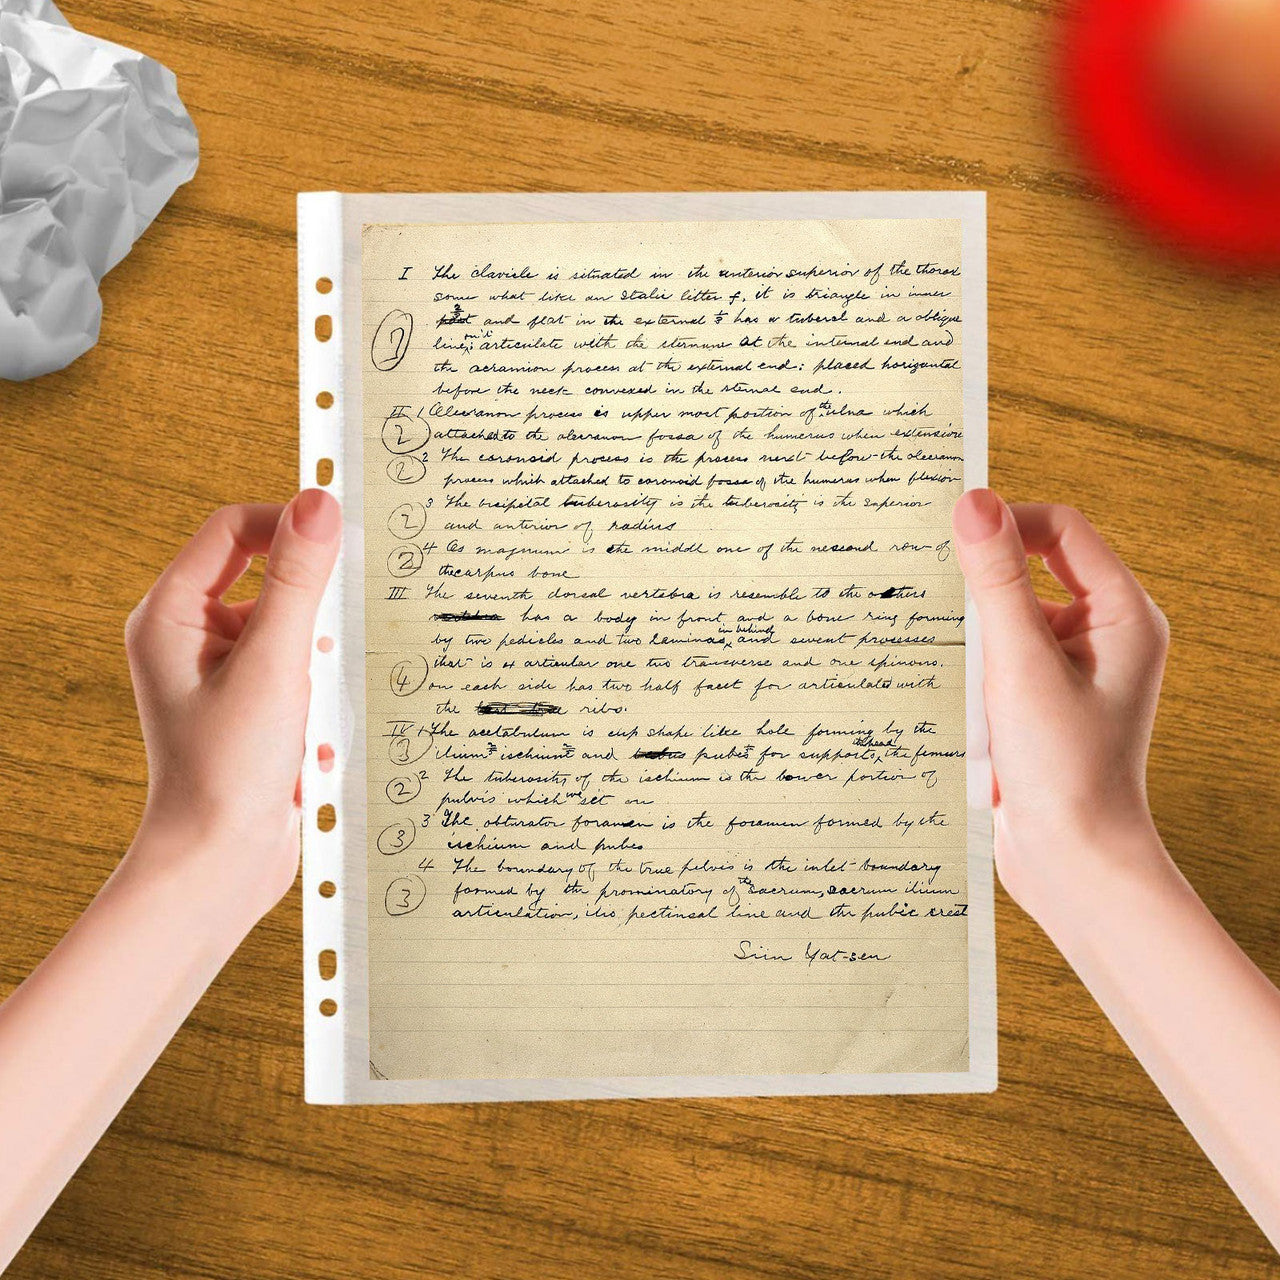 I The clavicle is situated in the anterior superior of the thorax
some what like an Italic letter f, it is triangle in inner
and flat in the external ⅓ has a tubercl and a oblique
7 line, on it articulate with the sternum at the internal end and
the acramion process at the external end; placed horizontal
before the neck convexed in the sternal end.
II 1 Olecranon process is upper most portion of the ulna which
2 attached to the olecranon fossa of the humerus when extension
2 2 The coronoid process is the process next before the olecranon
process which attached to coronoid fossa of the humerus when flexion
3 The bicipital tuberosity is the tuberocity is the superior
2 and anterior of radius
4 Os magnum is the middle one of the second row of
2 the carpus bone
III The seventh dorsal vertebra is resemble to the others
has a body in front and a bone ring forming
by two pedicles and two laminas, in behind and sevent processes
4 that is 4 articular one two transverse and one spinous.
on each side has two half facet for articulated with
the ribs.
IV 1 The acetabulum is cup shape like hole forming by the
3 ilium ischium and pubes for supports the head the femurs
2 2 The tuberosity of the ischium is the lower portion of
pulvis which we set on
3 The obturator foramen is the foramen formed by the
3 ischium and pubes
4 The boundary of the true pelvis is the inlet boundary
3 formed by the prominatory of the sacrum, sacrum ilium
articulation, ilio pectinsal line and the pubic crest
Sün Yat-sen